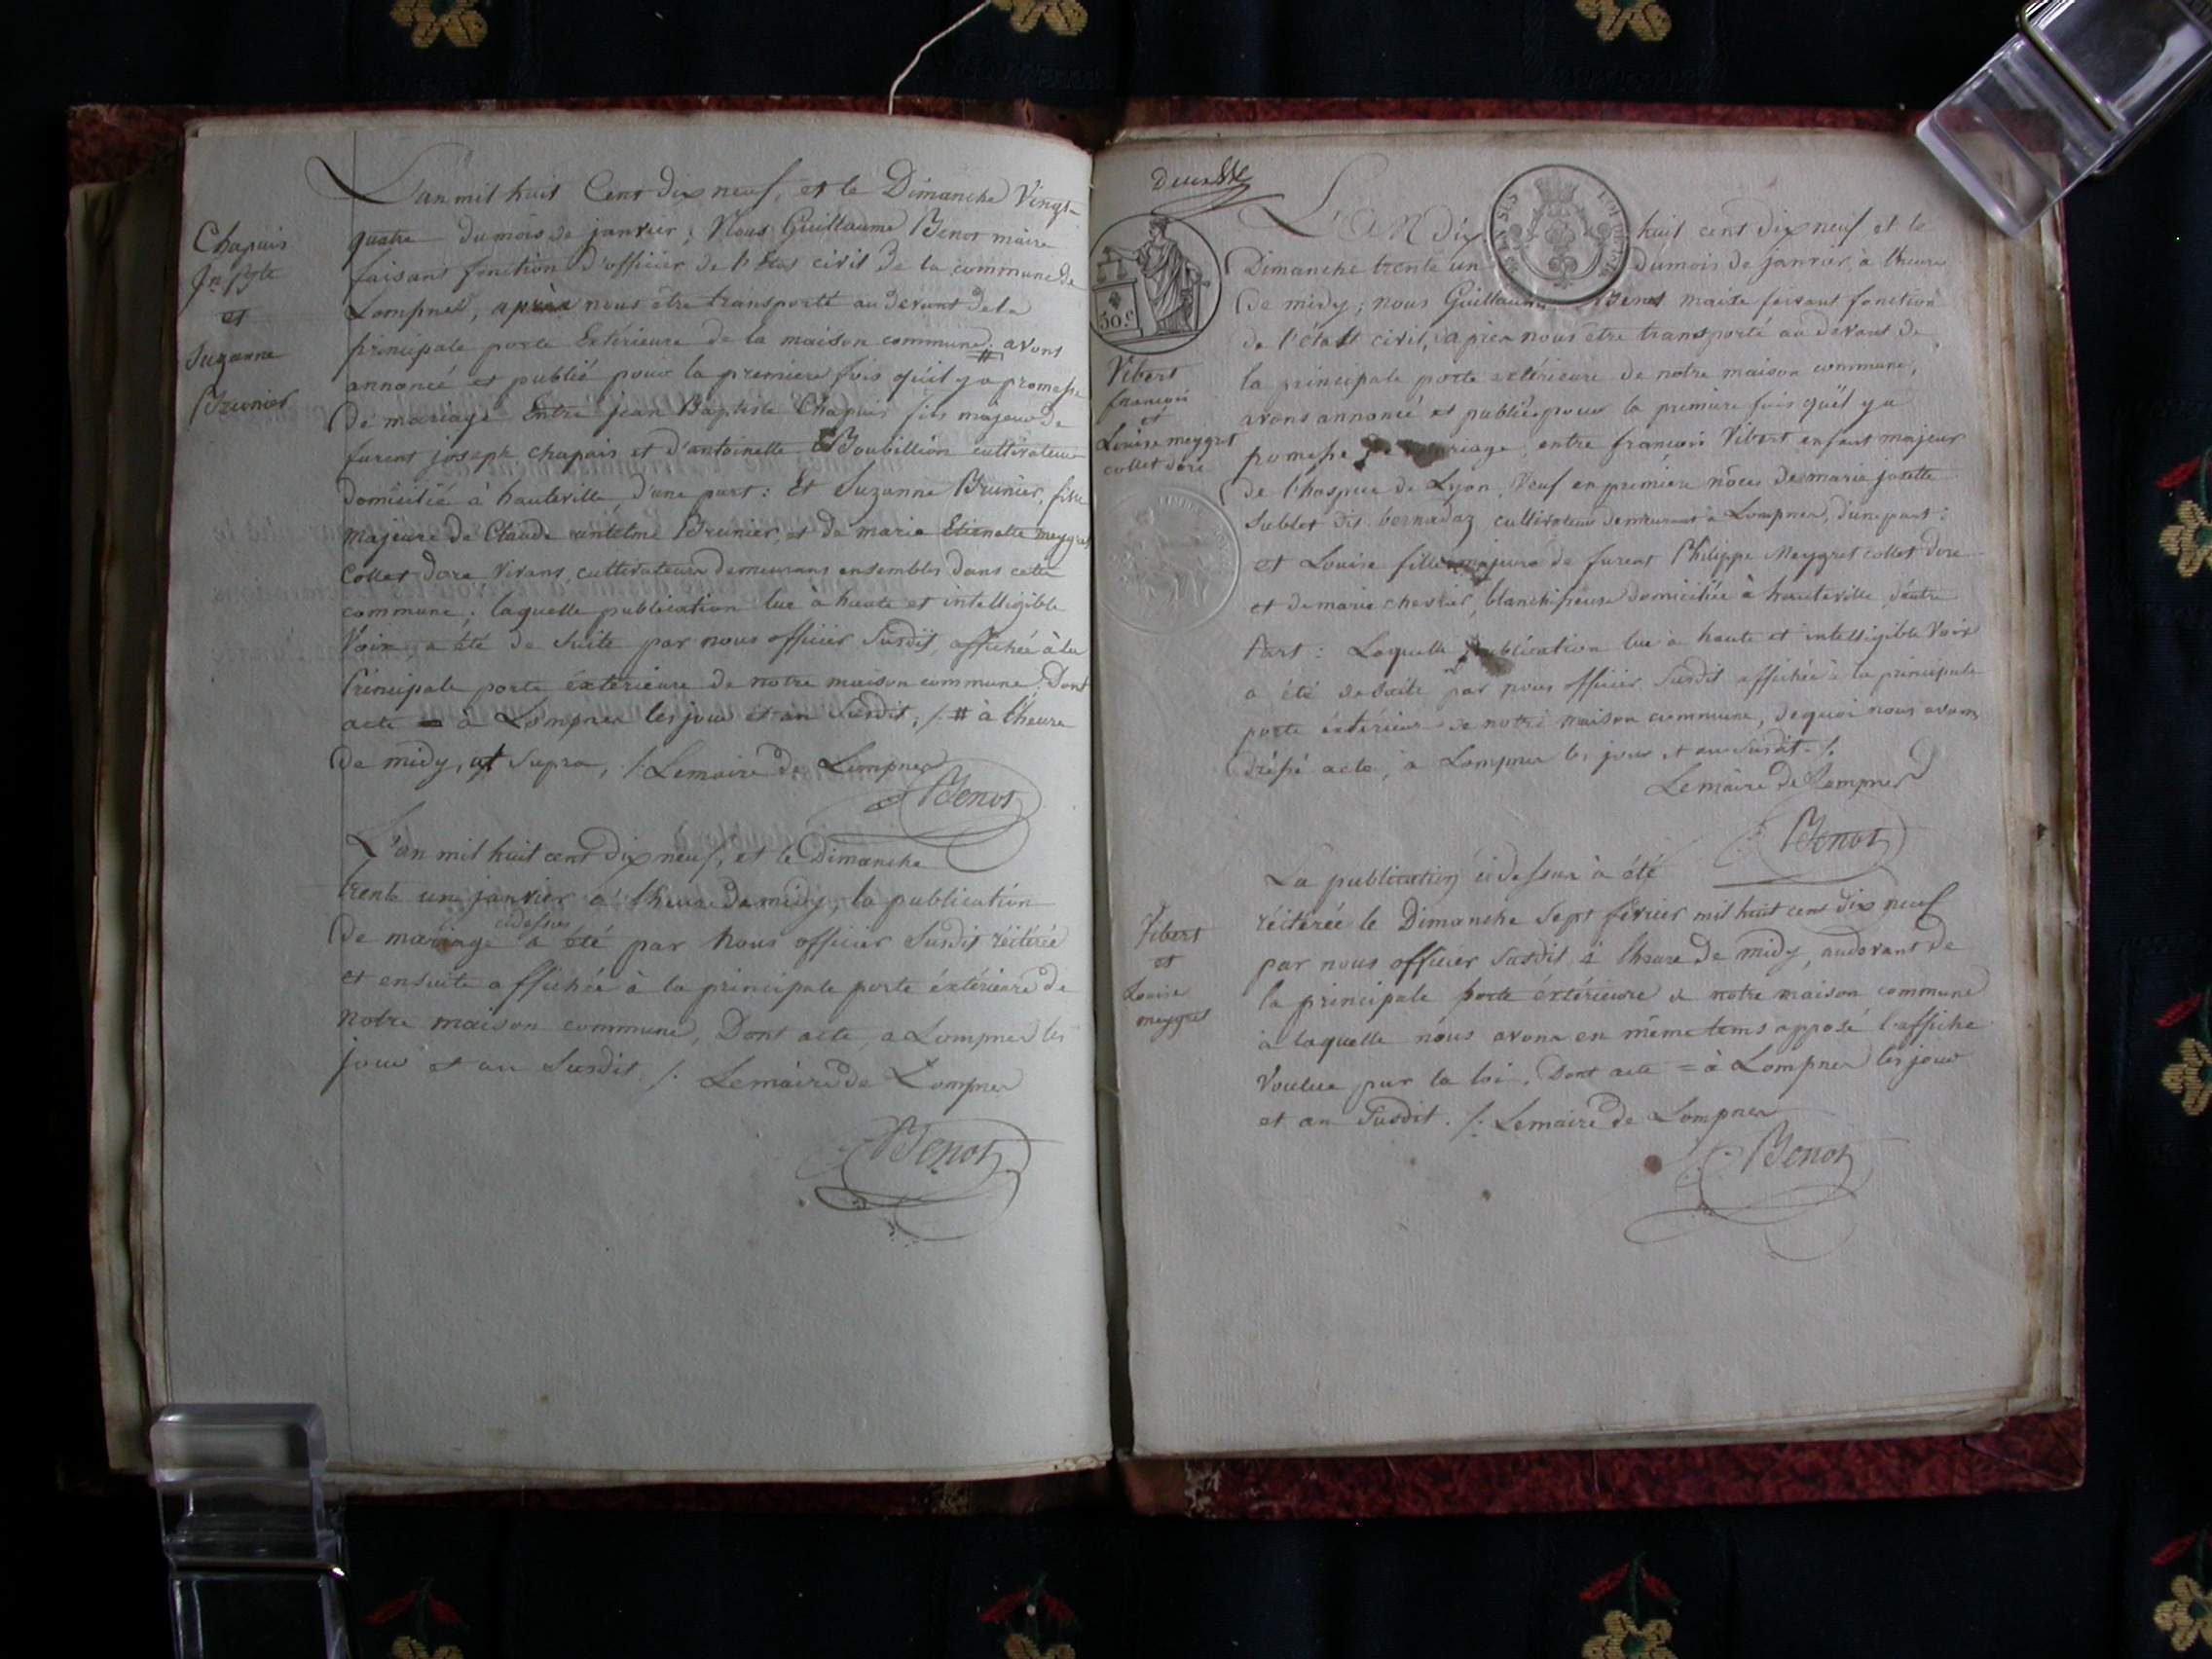 L'an mil huit Cent dix neuf, et le Dimanche Vingt-
quatre du mois de janvier; Nous Guillaume Benot maire
faisant fonction d'officier de l'Etat civil de la commune de
Lompnes, après nous être transporté au devant de la
principale porte Extérieure de la maison commune; # avons
annoncé et publié pour la première fois qu'il y a promesse
de mariage Entre jean Baptiste Chapuis fils majeur de
furent joseph chapuis et d'antoinette Boubillion cultivateur
domicilié à hauteville, d'une part: Et Suzanne Brunier, fille
majeure de Claude antelme Brunier, et de marie Etienette meygret
Collet dore, Vivans, cultivateurs demeurans ensembles dans cette
commune; laquelle publication lue à haute et intelligible
Voix, a été de suite par nous officier Susdit, affichée à la
Principale porte éxtérieure de notre maison commune. Dont
acte = à Lompnes les jour et an Susdit; /. # à l'heure
de midy, ut Supra, /. Lemaire de Lompnes
Benot
Chapuis
Jn Bte
et
Suzanne
Brunier
L'an mil huit cent dix neuf, et le Dimanche
trente un janvier à l'heure de midy, la publication
de mariage cidessus a été par nous officier Susdit réitérée
et ensuite affichée à la principale porte éxtérieure de
notre maison commune, Dont acte, a Lompnes les
jour et an Susdit /. Lemaire de Lompnes
Benot
L'AN dix huit cent dix neuf et le
Dimanche trente un du mois de janvier, à l'heure
de midy; nous Guillaume Benot maire faisant fonction
de l'état civil, après nous être transporté au devant de
la principale porte extérieure de notre maison commune,
avons annoncé et publié pour la première fois qu'il y a
promesse de mariage, entre françois Vibert enfant majeur
de l'hospice de Lyon, Veuf en première nôces de marie josette
Sublet dit bernadaz cultivateur demeurant à Lompnes, d'une part:
et Louise fille majeure de furent Philippe Meygret collet dore
et de marie chevrier, blanchisseuse domiciliée à hauteville, d'autre
Part: Laquelle publication lue à haute et intelligible Voix
a été de suite par nous officier Susdit affichée à la principale
porte éxtérieure de notre maison commune, de quoi nous avons
dréssé acte, à Lompnes les jour et an Susdit. /.
Lemaire de Lompnes
Benot
50.c
Vibert
françois
et
Louise meygret
collet dore
La publication cidessus à été
réitérée le Dimanche Sept février mil huit cent dix neuf
par nous officier Susdit à l'heure de midy, audevant de
la principale porte éxtérieure de notre maison commune
à laquelle nous avons en même tems apposé l'affiche
Voulue par la loi. Dont acte = à Lompnes les jour
et an Susdit. /. Lemaire de Lompnes
Benot
Vibert
et
Louise
meygret